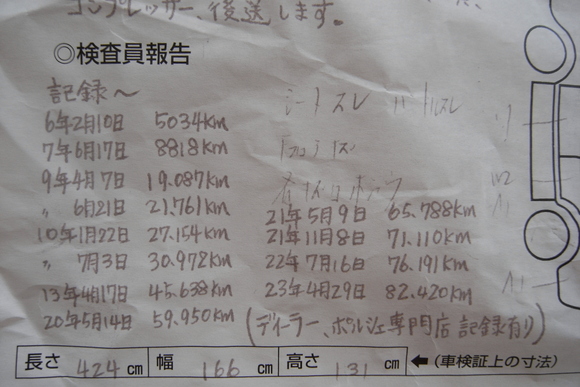 コンプレッサー、後送します。
◎検査員報告
記録〜
6年2月10日 5034km
7年6月17日 8818km
9年4月7日 19.087km
〃 6月21日 21.761km
10年1月22日 27.154km
〃 7月3日 30.972km
13年4月17日 45.638km
20年5月14日 59.950km
シートスレ
21年5月9日 65.788km
21年11月8日 71.110km
22年7月16日 76.191km
23年4月29日 82.420km
(ディーラー、ポルシェ専門店 記録有り)
W2
A1
A1
長さ 424 cm 幅 166 cm 高さ 131 cm ←(車検証上の寸法)